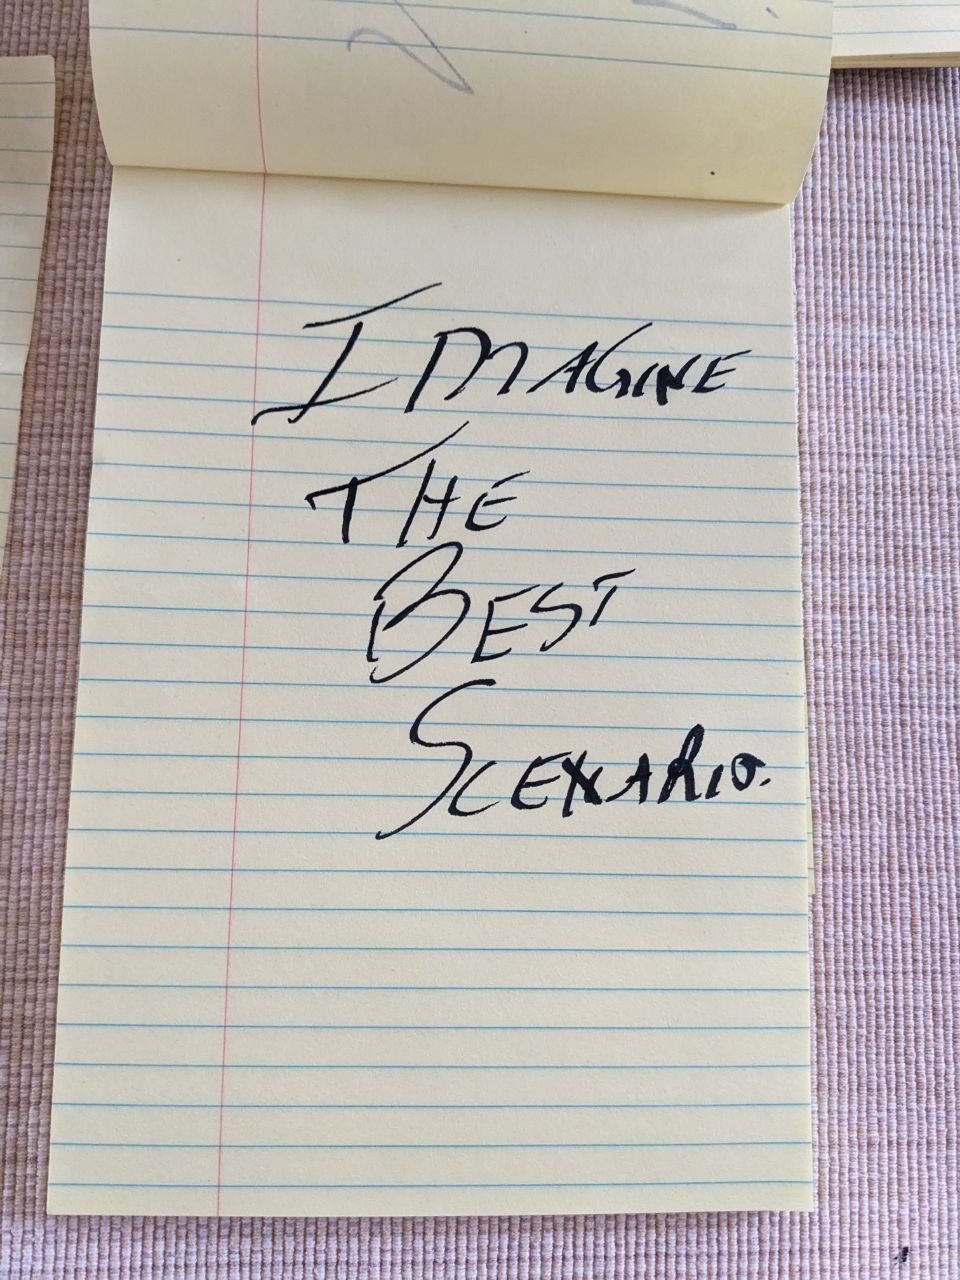 IMAGINE
THE
BEST
SCENARIO.